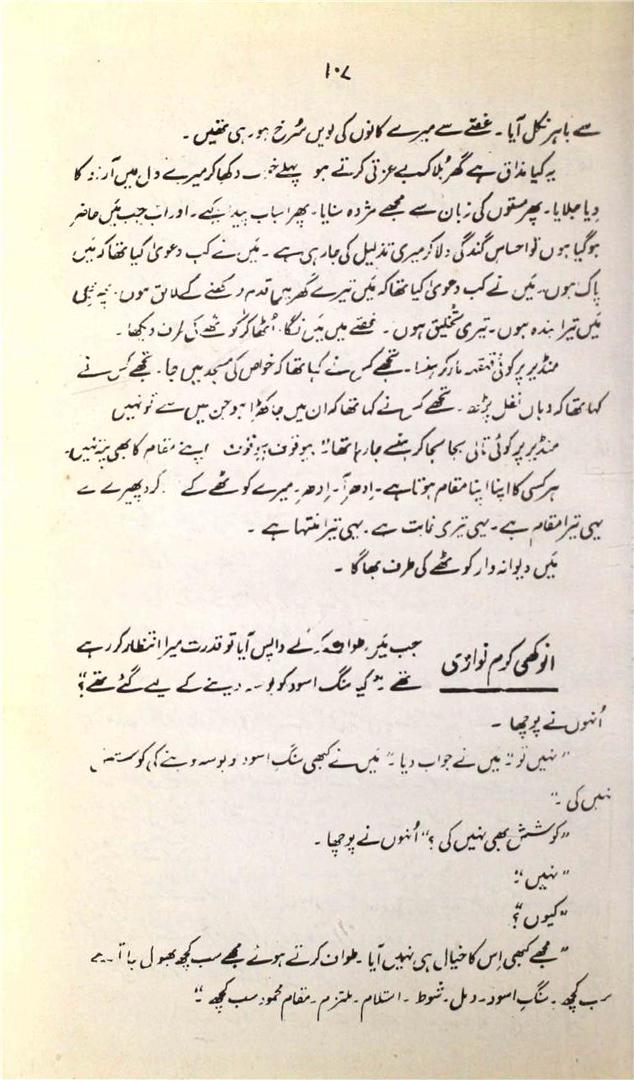 ۱۰۷
سے باہر نکل آیا۔ غصّے سے میرے کانوں کی لویں سُرخ ہو رہی تھیں۔
یہ کیا مذاق ہے گھر بُلا کر بے عزتی کرتے ہو پہلے خواب دکھا کر میرے دل میں آرزو کا
دِیا جلایا۔ پھر مستوں کی زبان سے مجھے مژدہ سنایا۔ پھر اسباب پیدا کیے۔ اور اب جب میں حاضر
ہو گیا ہوں تو احساسِ گندگی دلا کر میری تذلیل کی جا رہی ہے۔ میں نے کب دعویٰ کیا تھا کہ میں
پاک ہوں۔ میں نے کب دعویٰ کیا تھا کہ میں تیرے گھر میں قدم رکھنے کے لائق ہوں۔
میں تیرا بندہ ہوں۔ تیری تخلیق ہوں۔ غصّے میں میں نے نگاہ اُٹھا کر کوٹھے کی طرف دیکھا۔
منڈیر پر کوئی قہقہہ مار کر ہنسا۔ تجھے کس نے کہا تھا کہ خواص کی مسجد میں جا۔ تجھے کس نے
کہا تھا کہ وہاں نفل پڑھ۔ تجھے کس نے کہا تھا کہ ان میں جا کھڑا ہو جن میں سے تو نہیں
منڈیر پر کوئی تالی بجا بجا کر ہنسے جا رہا تھا "بیوقوف بیوقوف اپنے مقام کا بھی پتہ نہیں۔
ہر کسی کا اپنا اپنا مقام ہوتا ہے۔ اِدھر آ۔ اِدھر۔ میرے کوٹھے کے گرد پھیرے لے
یہی تیرا مقام ہے۔ یہی تیری غایت ہے۔ یہی تیرا منتہا ہے۔
میں دیوانہ وار کوٹھے کی طرف بھاگا۔
انوکھی کرم نوازی
جب میں طواف کر کے واپس آیا تو قدرت میرا انتظار کر رہے
تھے۔ "کیا سنگِ اسود کو بوسہ دینے کے لیے گئے تھے؟"
اُنہوں نے پوچھا۔
"نہیں تو" میں نے جواب دیا۔ "میں نے کبھی سنگِ اسود کو بوسہ دینے کی کوشش
نہیں کی۔"
"کوشش بھی نہیں کی؟" اُنہوں نے پوچھا۔
"نہیں"۔
"کیوں؟"
"مجھے کبھی اِس کا خیال ہی نہیں آیا۔ طواف کرتے ہوئے مجھے سب کچھ بھول جاتا ہے
سب کچھ۔ سنگِ اسود۔ رمل۔ شوط۔ استلام۔ ملتزم۔ مقامِ محمود سب کچھ۔"